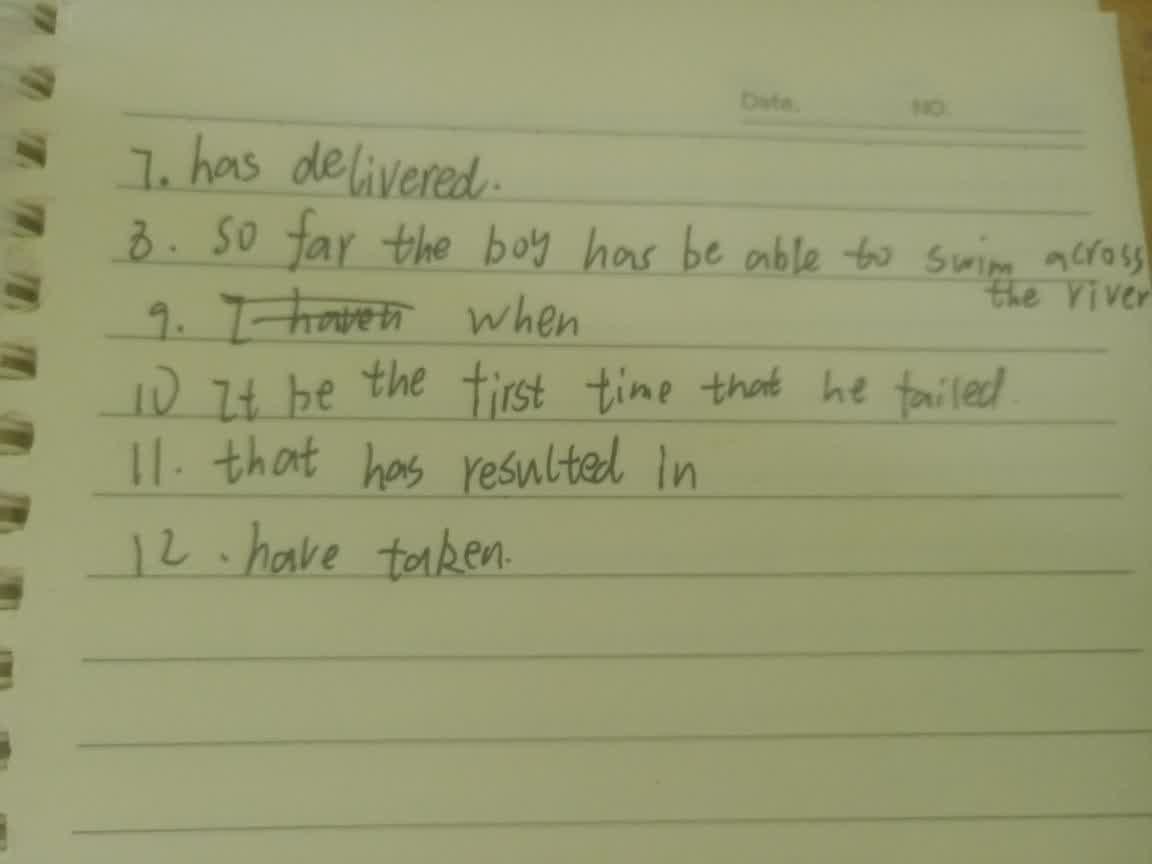 Date. NO.
7. has delivered.
8. so far the boy has be able to swim across
the river
9. I haven when
10 It be the first time that he failed.
11. that has resulted in
12. have taken.